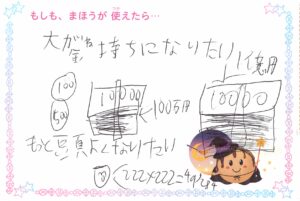 もしも、まほうが 使えたら…
大がね金持ちになりたい
1億円
100
10000
10000
500
←100万円
もっと頭よくなりたい
222×222=49284